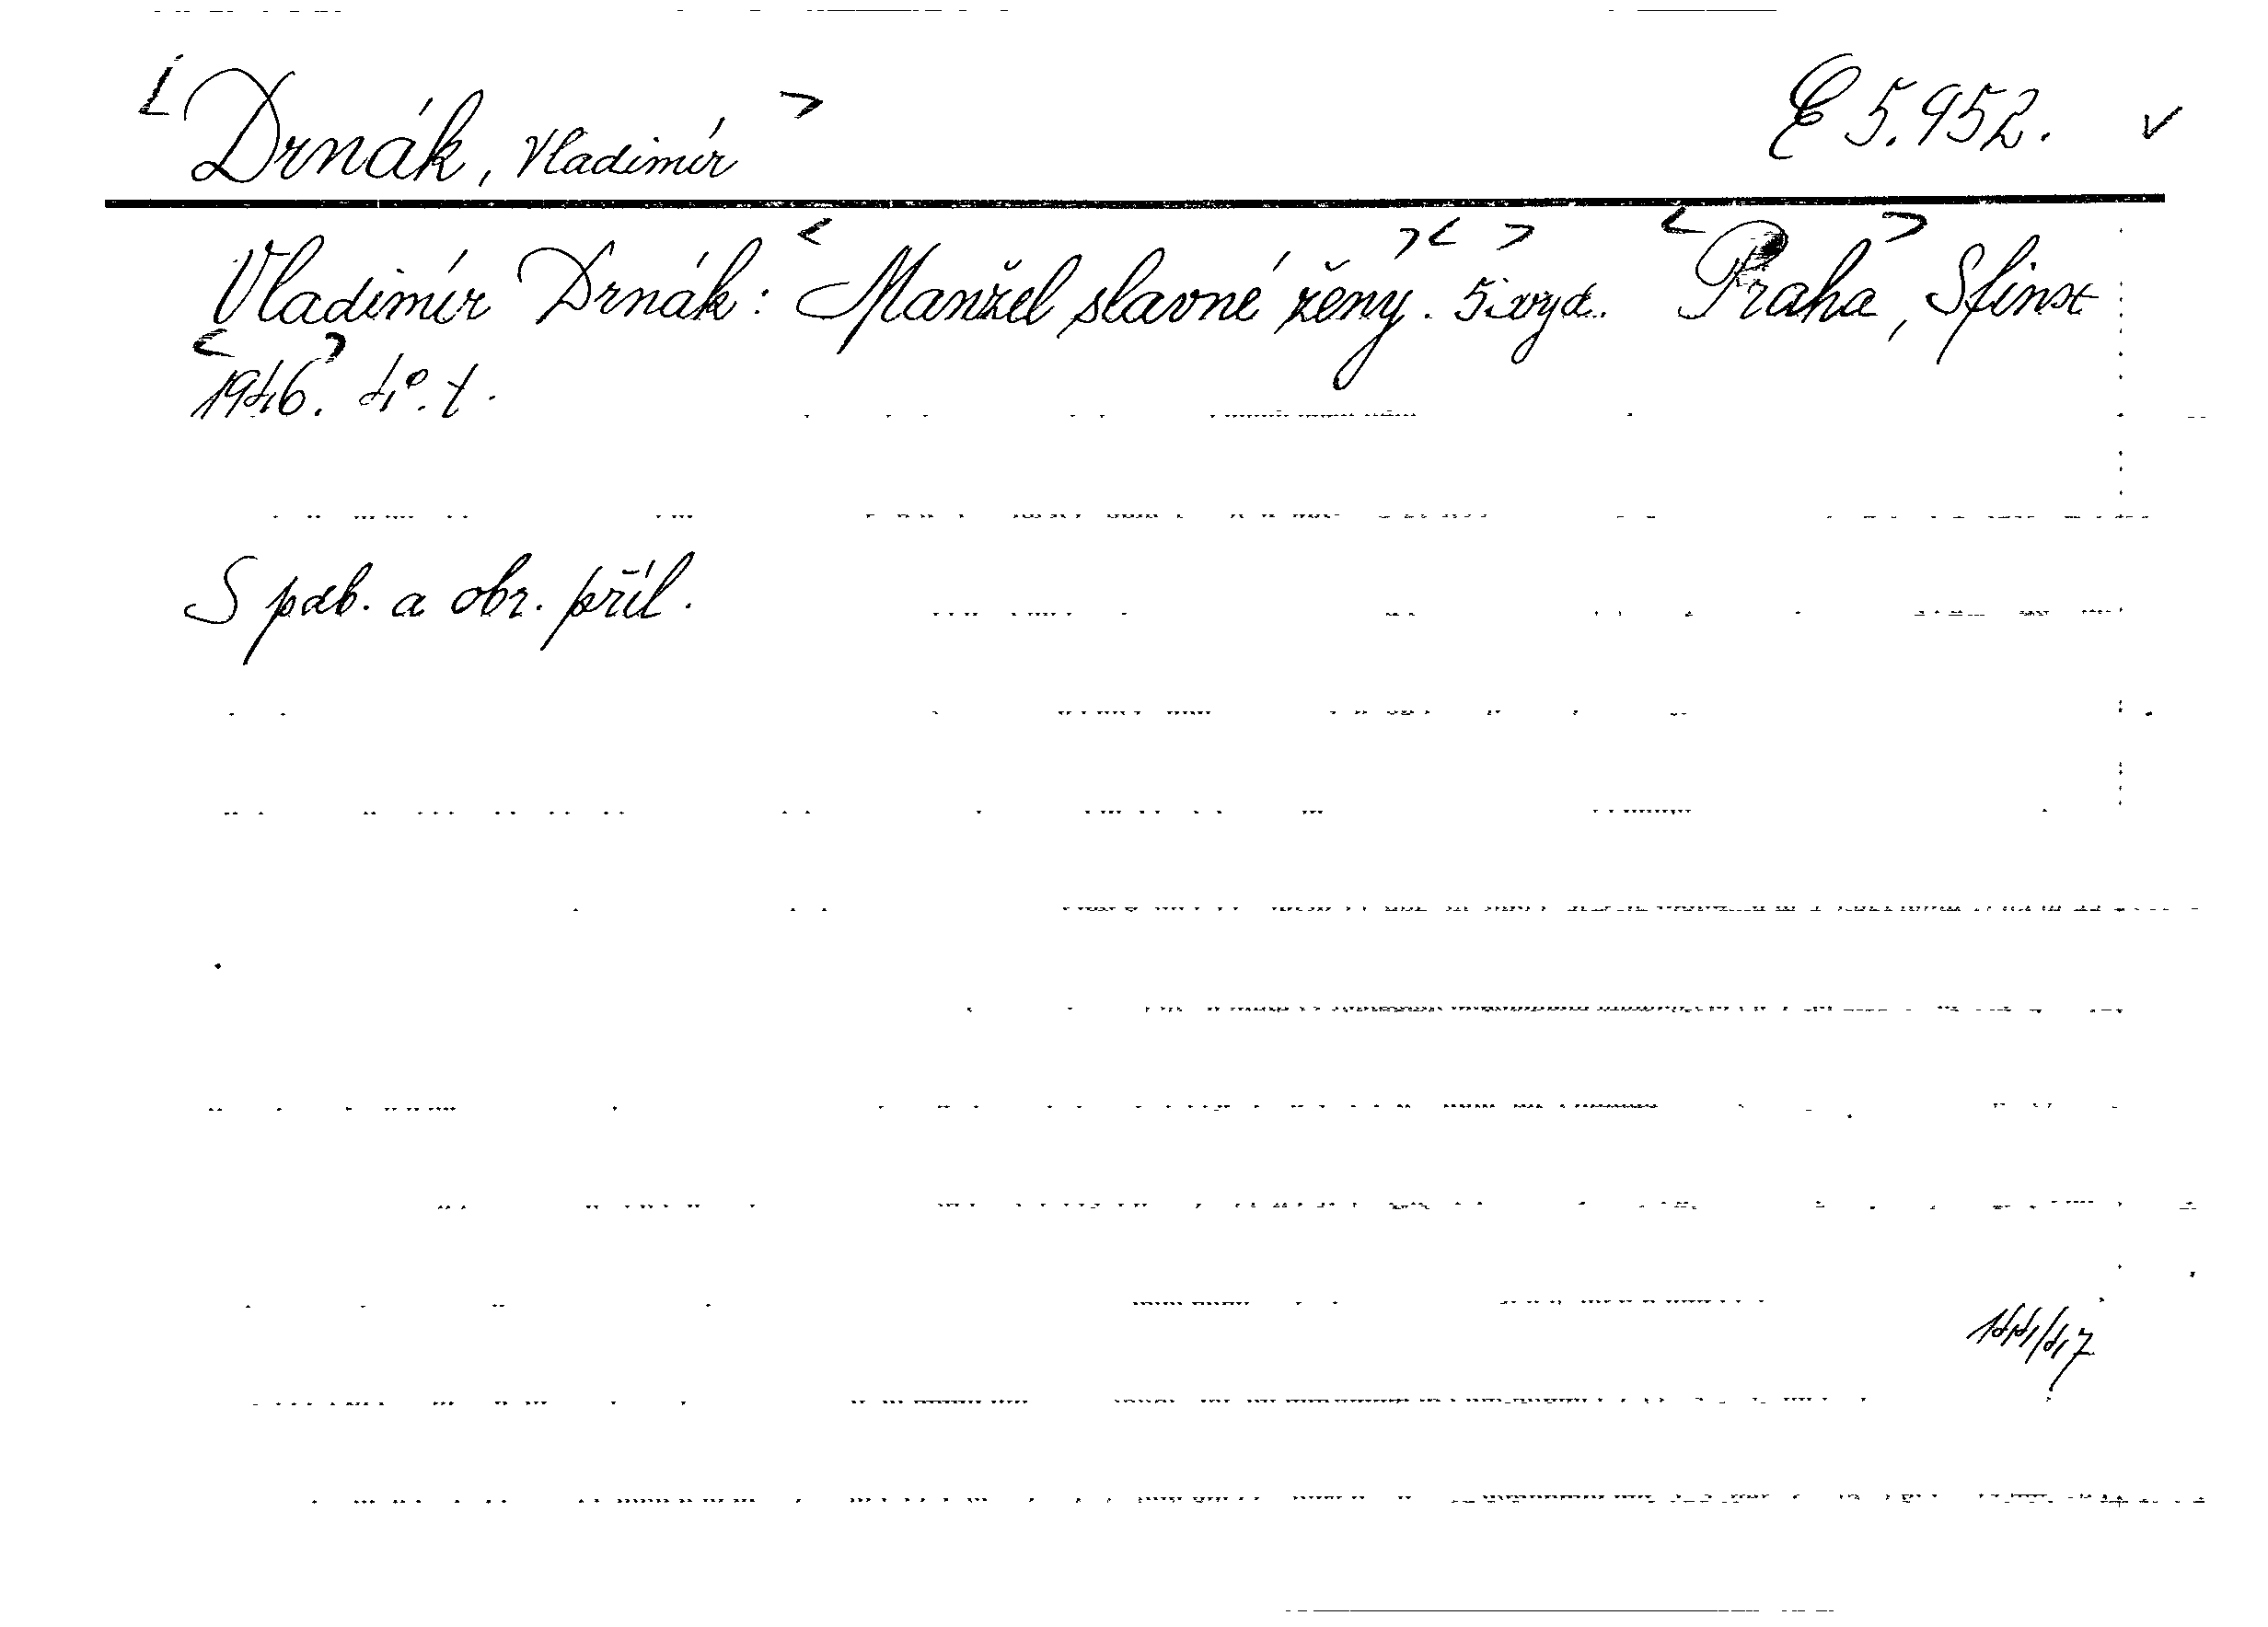 <Drnák, Vladimír> E 5.952. ✓
Vladimír Drnák: <Manžel slavné ženy>. <5. vyd.> <Praha>, Sfinx
<1946>. 4°. t.
S pdb. a obr. příl.
144/47